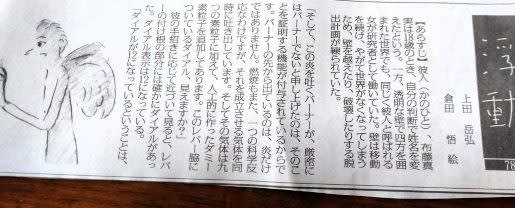 浮動
78
上田 岳弘
倉田 悟 絵
【あらすじ】彼人（かのひと）、布藤真
実は18歳のとき、自分の判断で姓名を変
えたという。一方、透明な壁で四方を囲
まれた世界でも、同じく彼人と呼ばれる
女が研究者として働いていた。壁は移動
を続け、やがて世界がなくなってしまう
ため、壁を越えたり、破壊したりする脱
出計画が練られていた。
「そして、この炎を吐くバーナーが、厳密に
はバーナーでないと申し上げたのは、そのこ
とを証明する機能が付与されているからで
す。バーナーの先から出ているのは、炎だけ
ではありません。燃焼もまた、一つの科学反
応なわけですが、それを成立させる気体を同
時に吐き出しています。そしてその気体は九
つの素粒子に加えて、人工的に作ったダミー
素粒子を追加してあります。このレバー、脇に
ついているダイアル、見えますか？」
彼の手招きに応じて近づいて見ると、レバ
ーの付け根の部分には確かにダイアルがあっ
た。ダイアル表示は9になっている。
「ダイアルが9になっているということは、